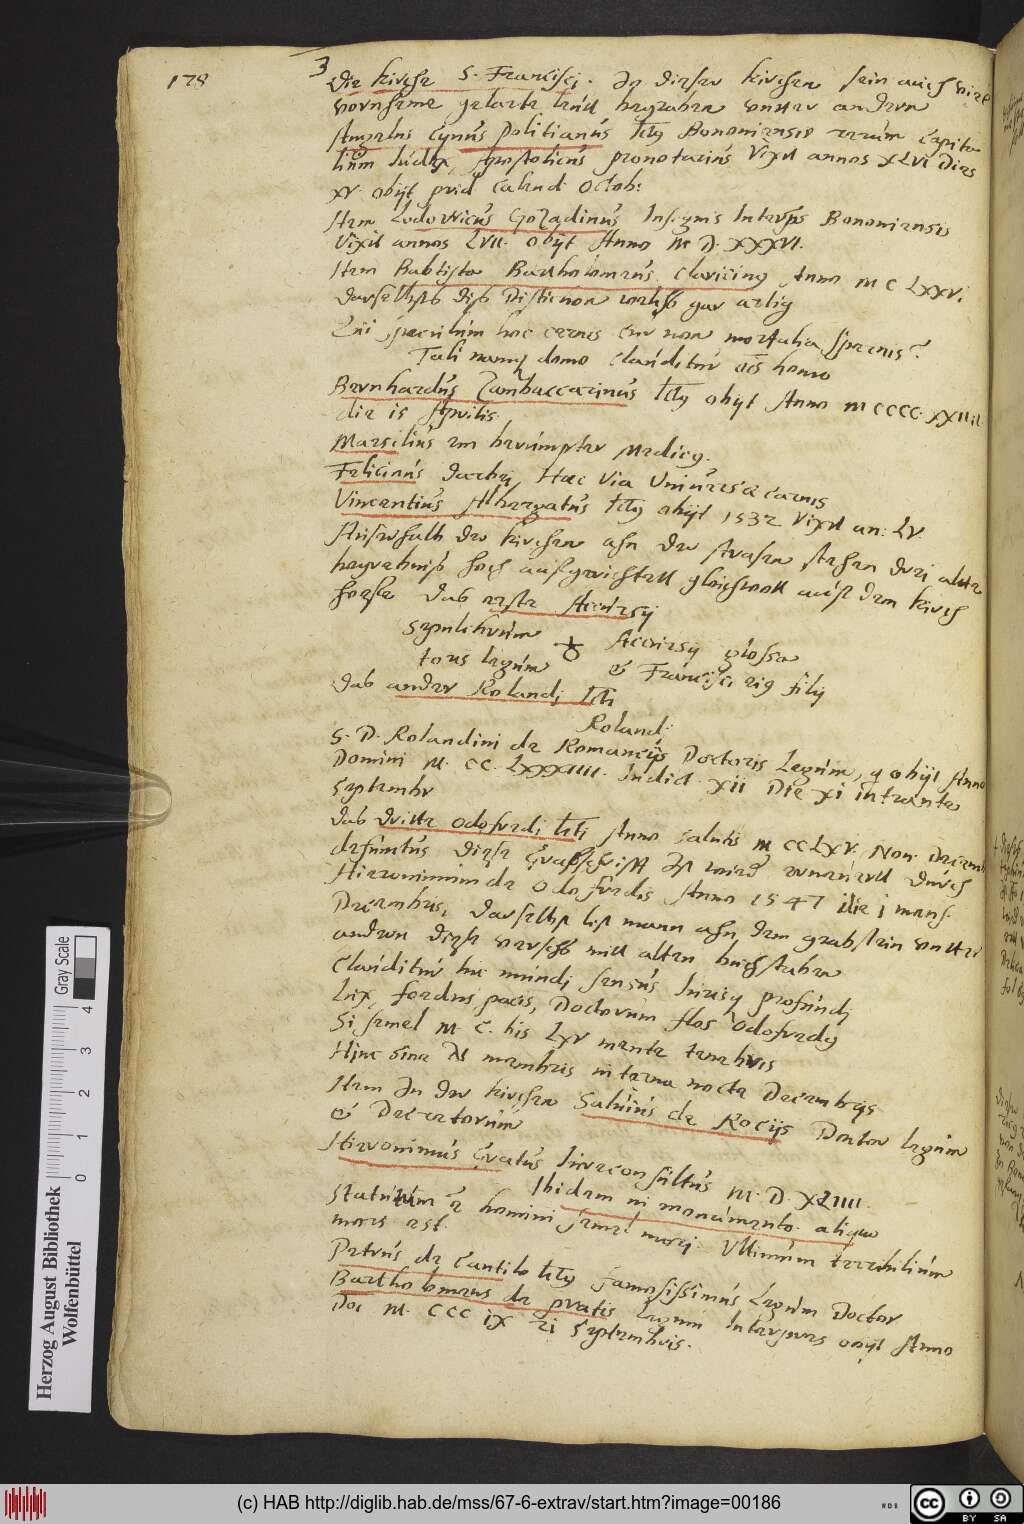 178
3
Die kirche S. Francisci. In dieser kirchen sein auch viele
vornheme gelarte leütt begraben vnnter andern
Angelus Cynus Politianus Ictus Bononiensis rerum Capito
linum Iudex, Apostolicus pronotarius Vixit annos XLVI Dies
XV. obijt prid Calend: Octob:
Item Lodovicus Gozadinus Insignis Interps Bononiensis
Vixit annos LVII. obijt Anno M D. XXXVI.
Item Babtista Bartholomeus Clavicinus Anno M C LXXVI
darselbst diss Distichon welches gar artig
Cui speculum hoc cernis cur non mortalia spernis?
Tali namque domo clauditur ois homo
Bernhardus Zambeccarinus Ictus obijt Anno M CCCC XXIIII
die is Aprilis.
Marsilius ein berümpter Medicus.
Felicinus darbei Haec Via Universae carnis
Vincentius Albergatus Ictus obijt 1532 Vixit an: LV.
Ausserhalb der kirchen ahn der strassen stehen drei alte
begrebnuss hoch auffgerichtett gleichwoll auff dem kirch
hoeffe das erste Accursij
Sepulchrum Accursij glossa
toris legum & Francisci eius filij
das ander Rolandj Icti
Roland:
S. D. Rolandini de Romancijs Doctoris Legum, q obijt Anno
Domini M. CC. LXXXIIII. Indict XII Die XI intrante
Septembr
das dritte Odofredi Icti Anno salutis M CC LXV. Non. Decemb
defunctus diese Grabschrifft Ist wied ernewertt durch
Hieronimum de Odofredis Anno 1547 die j mens
Decembris, darselbst list mann ahn dem grabstein vnnter
andern diese versch mitt alten buchstaben
Clauditur hic mundj sensus Iurisq profundj
Lux, foedus pacis, Doctorum flos Odofredus
Si semel M. C. bis LXV mente tenebris
Hinc sine ter membris in terna nocte Decembris
Item In der kirchen Saluius de Rocijs Doctor legum
& Decretorum
Hieronimus Gratus Iureconsultus M. D. XLIIII.
Ibidem in monumento aliquo
Statutum e homini semel mori. Ultimum terribilium
mors est.
Petrus de Cantilo Ictus famosissimus Legum Doctor
Bartholomeus de pratis Legum Interpres obijt Anno
Doi M. CCC IX XI Septembris.
Gray Scale
0 1 2 3 4
Herzog August Bibliothek
Wolfenbüttel
(c) HAB http://diglib.hab.de/mss/67-6-extrav/start.htm?image=00186
WDB
cc BY SA